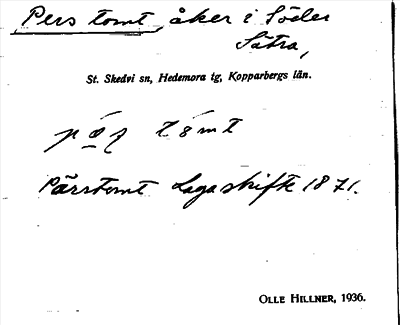 Pers tomt, åker i Söder
Sätra,
St. Skedvi sn, Hedemora tg, Kopparbergs län.
Pärstomt Laga skifte 1871.
OLLE HILLNER, 1936.